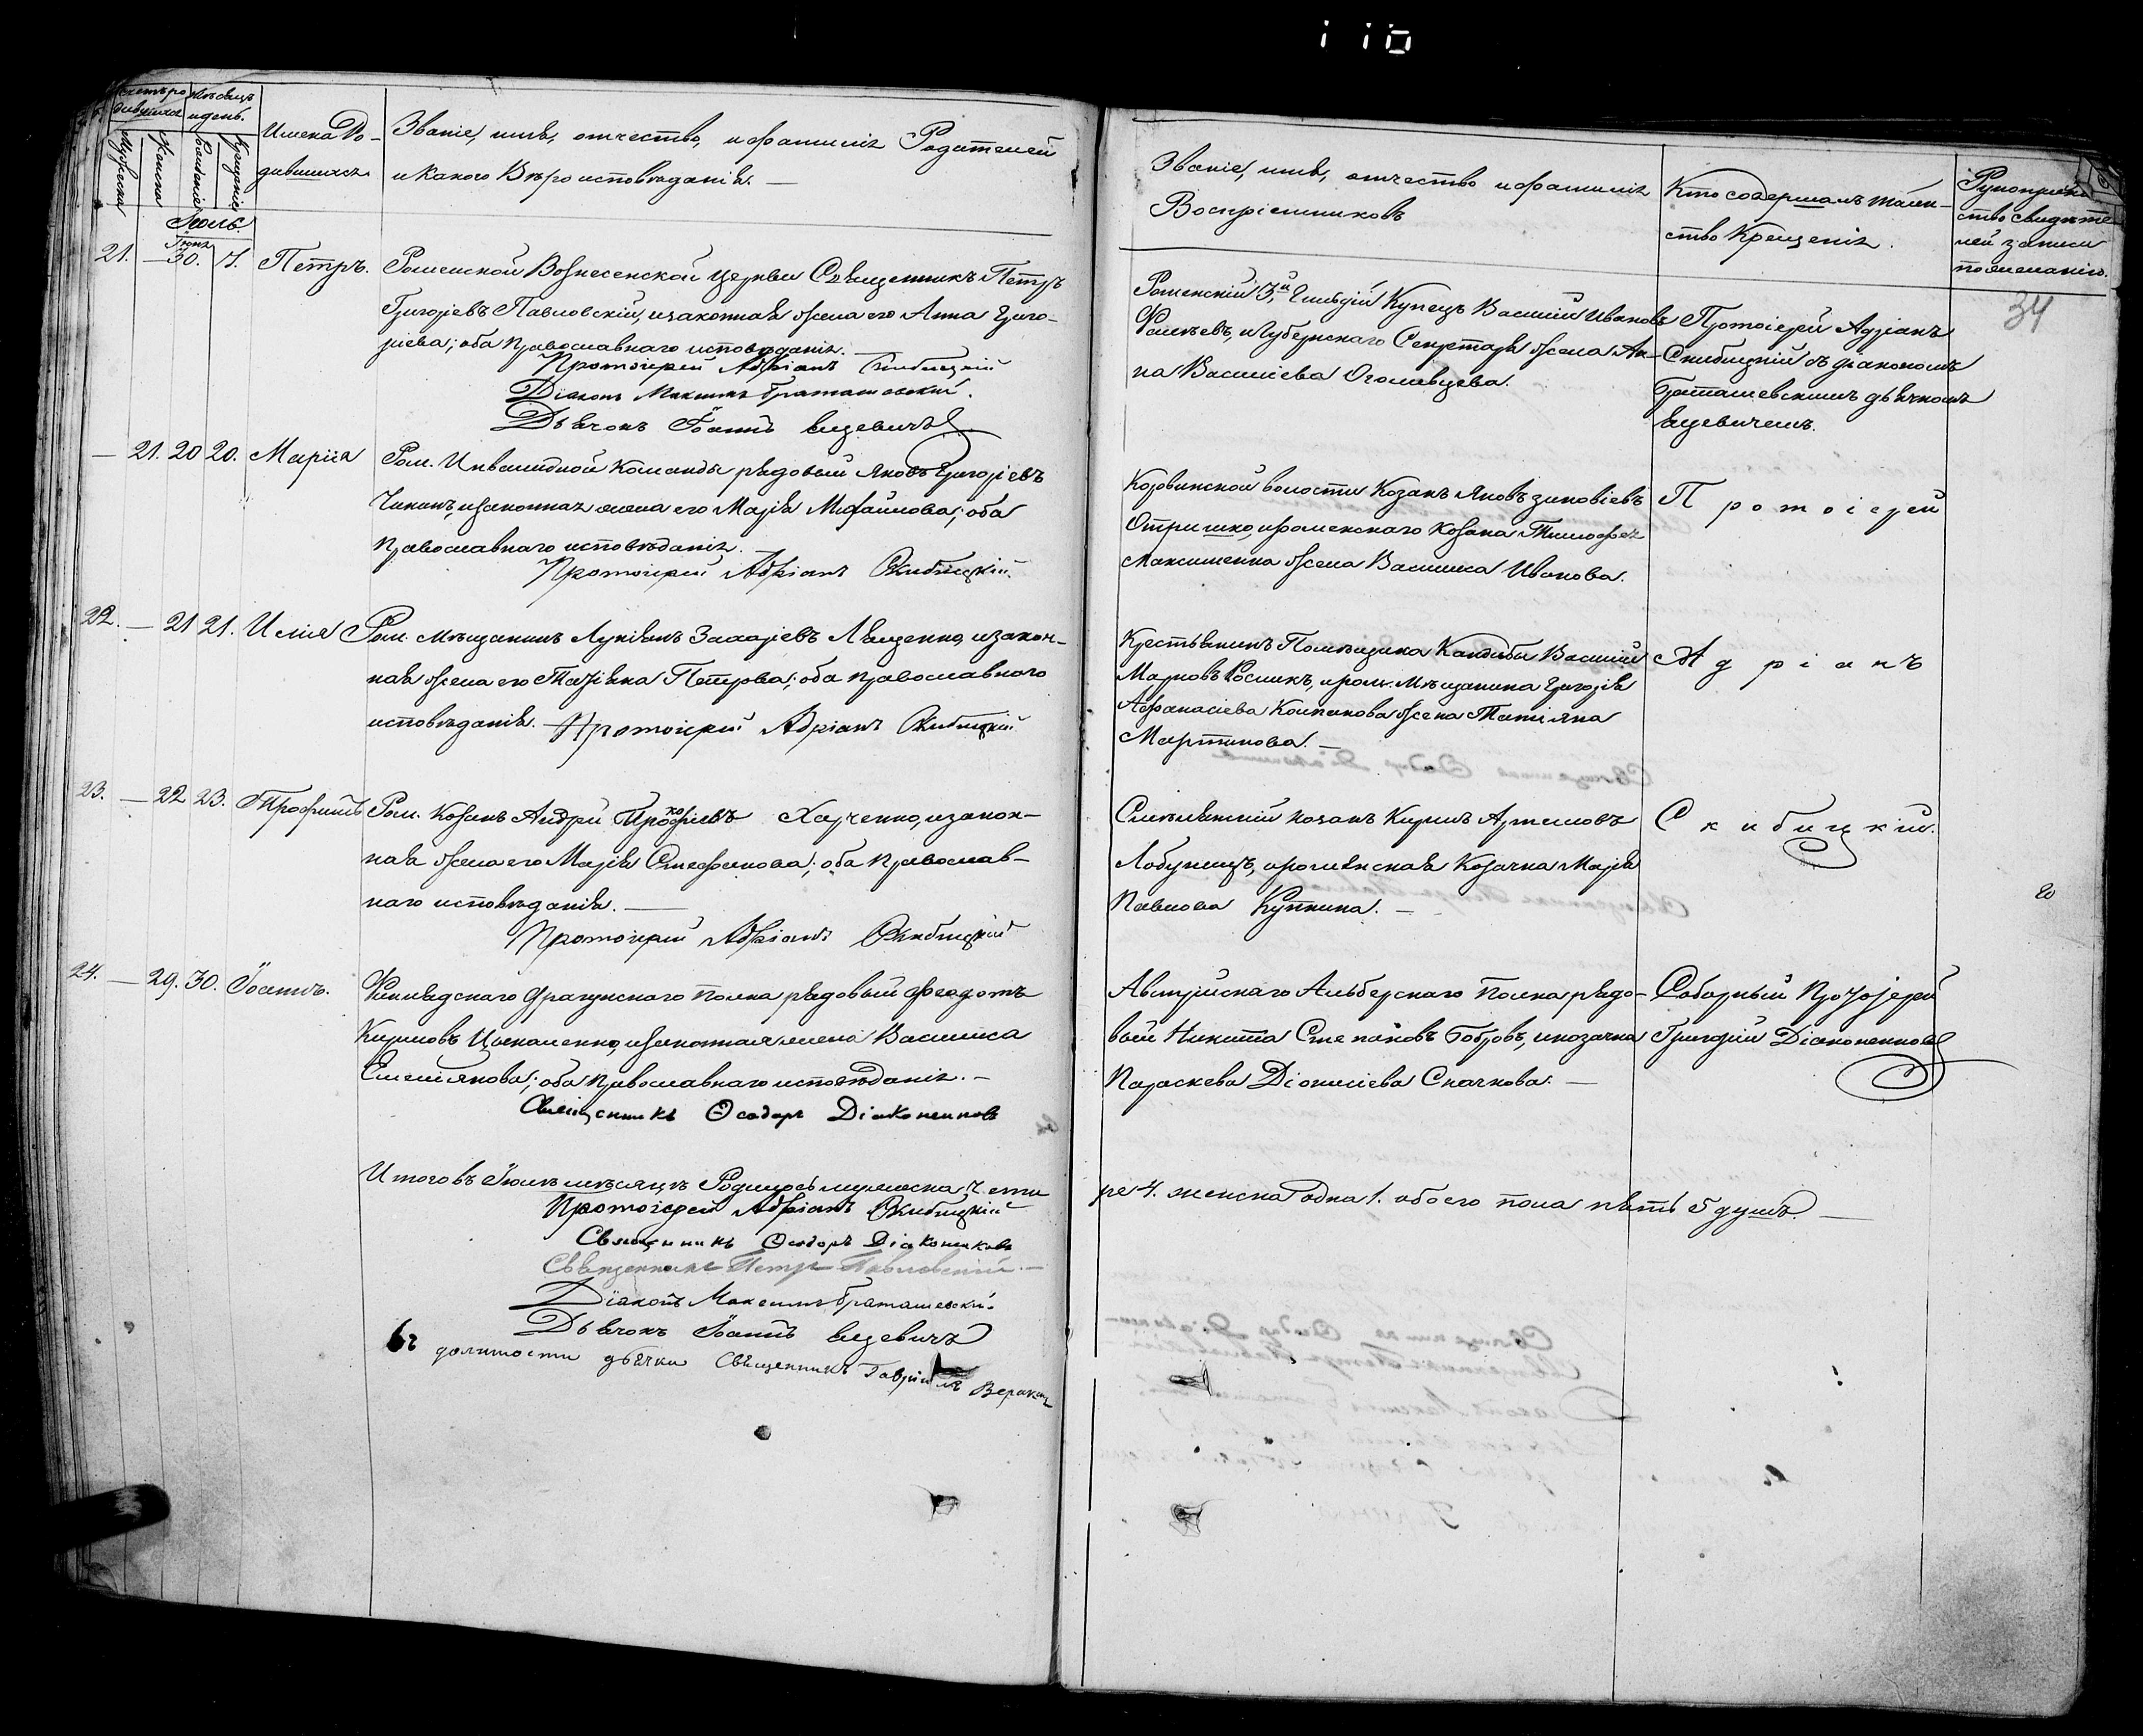 110
Счетъ ро
дившихся
Мѣсяцъ
и день.
Мужеска
Женска
Рожденія
Крещенія
Имена Ро-
дившихся
Званіе, имя, отчество, и фамилія Родителей
и какого Вѣроисповѣданія. —
Іюль.
Іюня
21. — 30. 7. Петръ. Роменской Вознесенской Церкви Священникъ Петръ
Григоріевъ Павловскій, и законная жена его Анна Григо-
ріева; оба православнаго исповѣданія.
Протоіерей Адріанъ Скибицкій
Діаконъ Максимъ Браташевскій.
Дьячокъ Іоаннъ
— 21. 20 20. Марія Ром. Инвалидной Команды рядовый Яковъ Григоріевъ
и законная жена его Марія Михайлова; оба
православнаго исповѣданія. —
Протоіерей Адріанъ Скибицкій.
22. — 21 21. Илія Ром. мѣщанинъ Лукіянъ Захаріевъ Лященко, и закон-
ная жена его Петрова; оба православнаго
исповѣданія. Протоіерей Адріанъ Скибицкій
23. — 22 23. Трофимъ Ром. Козакъ Андрей Харченко, и закон-
ная жена его Марія Стефанова; оба православ-
наго исповѣданія. —
Протоіерей Адріанъ Скибицкій
24. — 29. 30. Іоаннъ. Финляндскаго Драгунскаго полка рядовый Феодотъ
Кириловъ и законная жена Василиса
Емеліянова; оба православнаго исповѣданія. —
Священникъ Ѳеодоръ Діаконенковъ
Итого въ Іюлѣ мѣсяцѣ Родилось мужеска четы
Протоіерей Адріанъ Скибицкій
Священникъ Ѳеодоръ Діаконенковъ
Священникъ Петръ Павловскій. —
Діаконъ Максимъ Браташевскій.
Дьячокъ Іоаннъ
въ должности дьячка Священникъ Гавріилъ
Званіе, имя, отчество и фамилія
Воспріемниковъ
Кто совершалъ таин-
ство Крещенія.
Рукоприкл
ство свидѣте
лей записи
по желанію.
34
Роменскій 3й Гильдіи Купецъ Василій Ивановъ
и Губернскаго Секретаря жена Ан-
на Василіева Оголевцева.
Протоіерей Адріанъ
Скибицкій съ діакономъ
Браташевскимъ дьячкомъ
Коровинской волости Козакъ Яковъ Зиновіевъ
Отришко, и роменскаго Козака Тимофея
Максименка жена Василиса Иванова.
Протоіерей
Крестьянинъ Помѣщика Кандибы Василій
Марковъ и ром. Мѣщанина Григорія
Афанасіева жена Татіяна
Мартинова. —
Адріанъ
козакъ Кирилъ Артемовъ
и роменская Козачка Марія
Павлова —
Скибицкій.
Австрійскаго полка рядо-
вый Никита Степановъ Бобровъ, и козачка
Параскева Діонисіева Скачкова. —
Соборный Протоіерей
Григорій Діаконенковъ
ре 4. женска одна 1. обоего пола пять 5 душъ. —